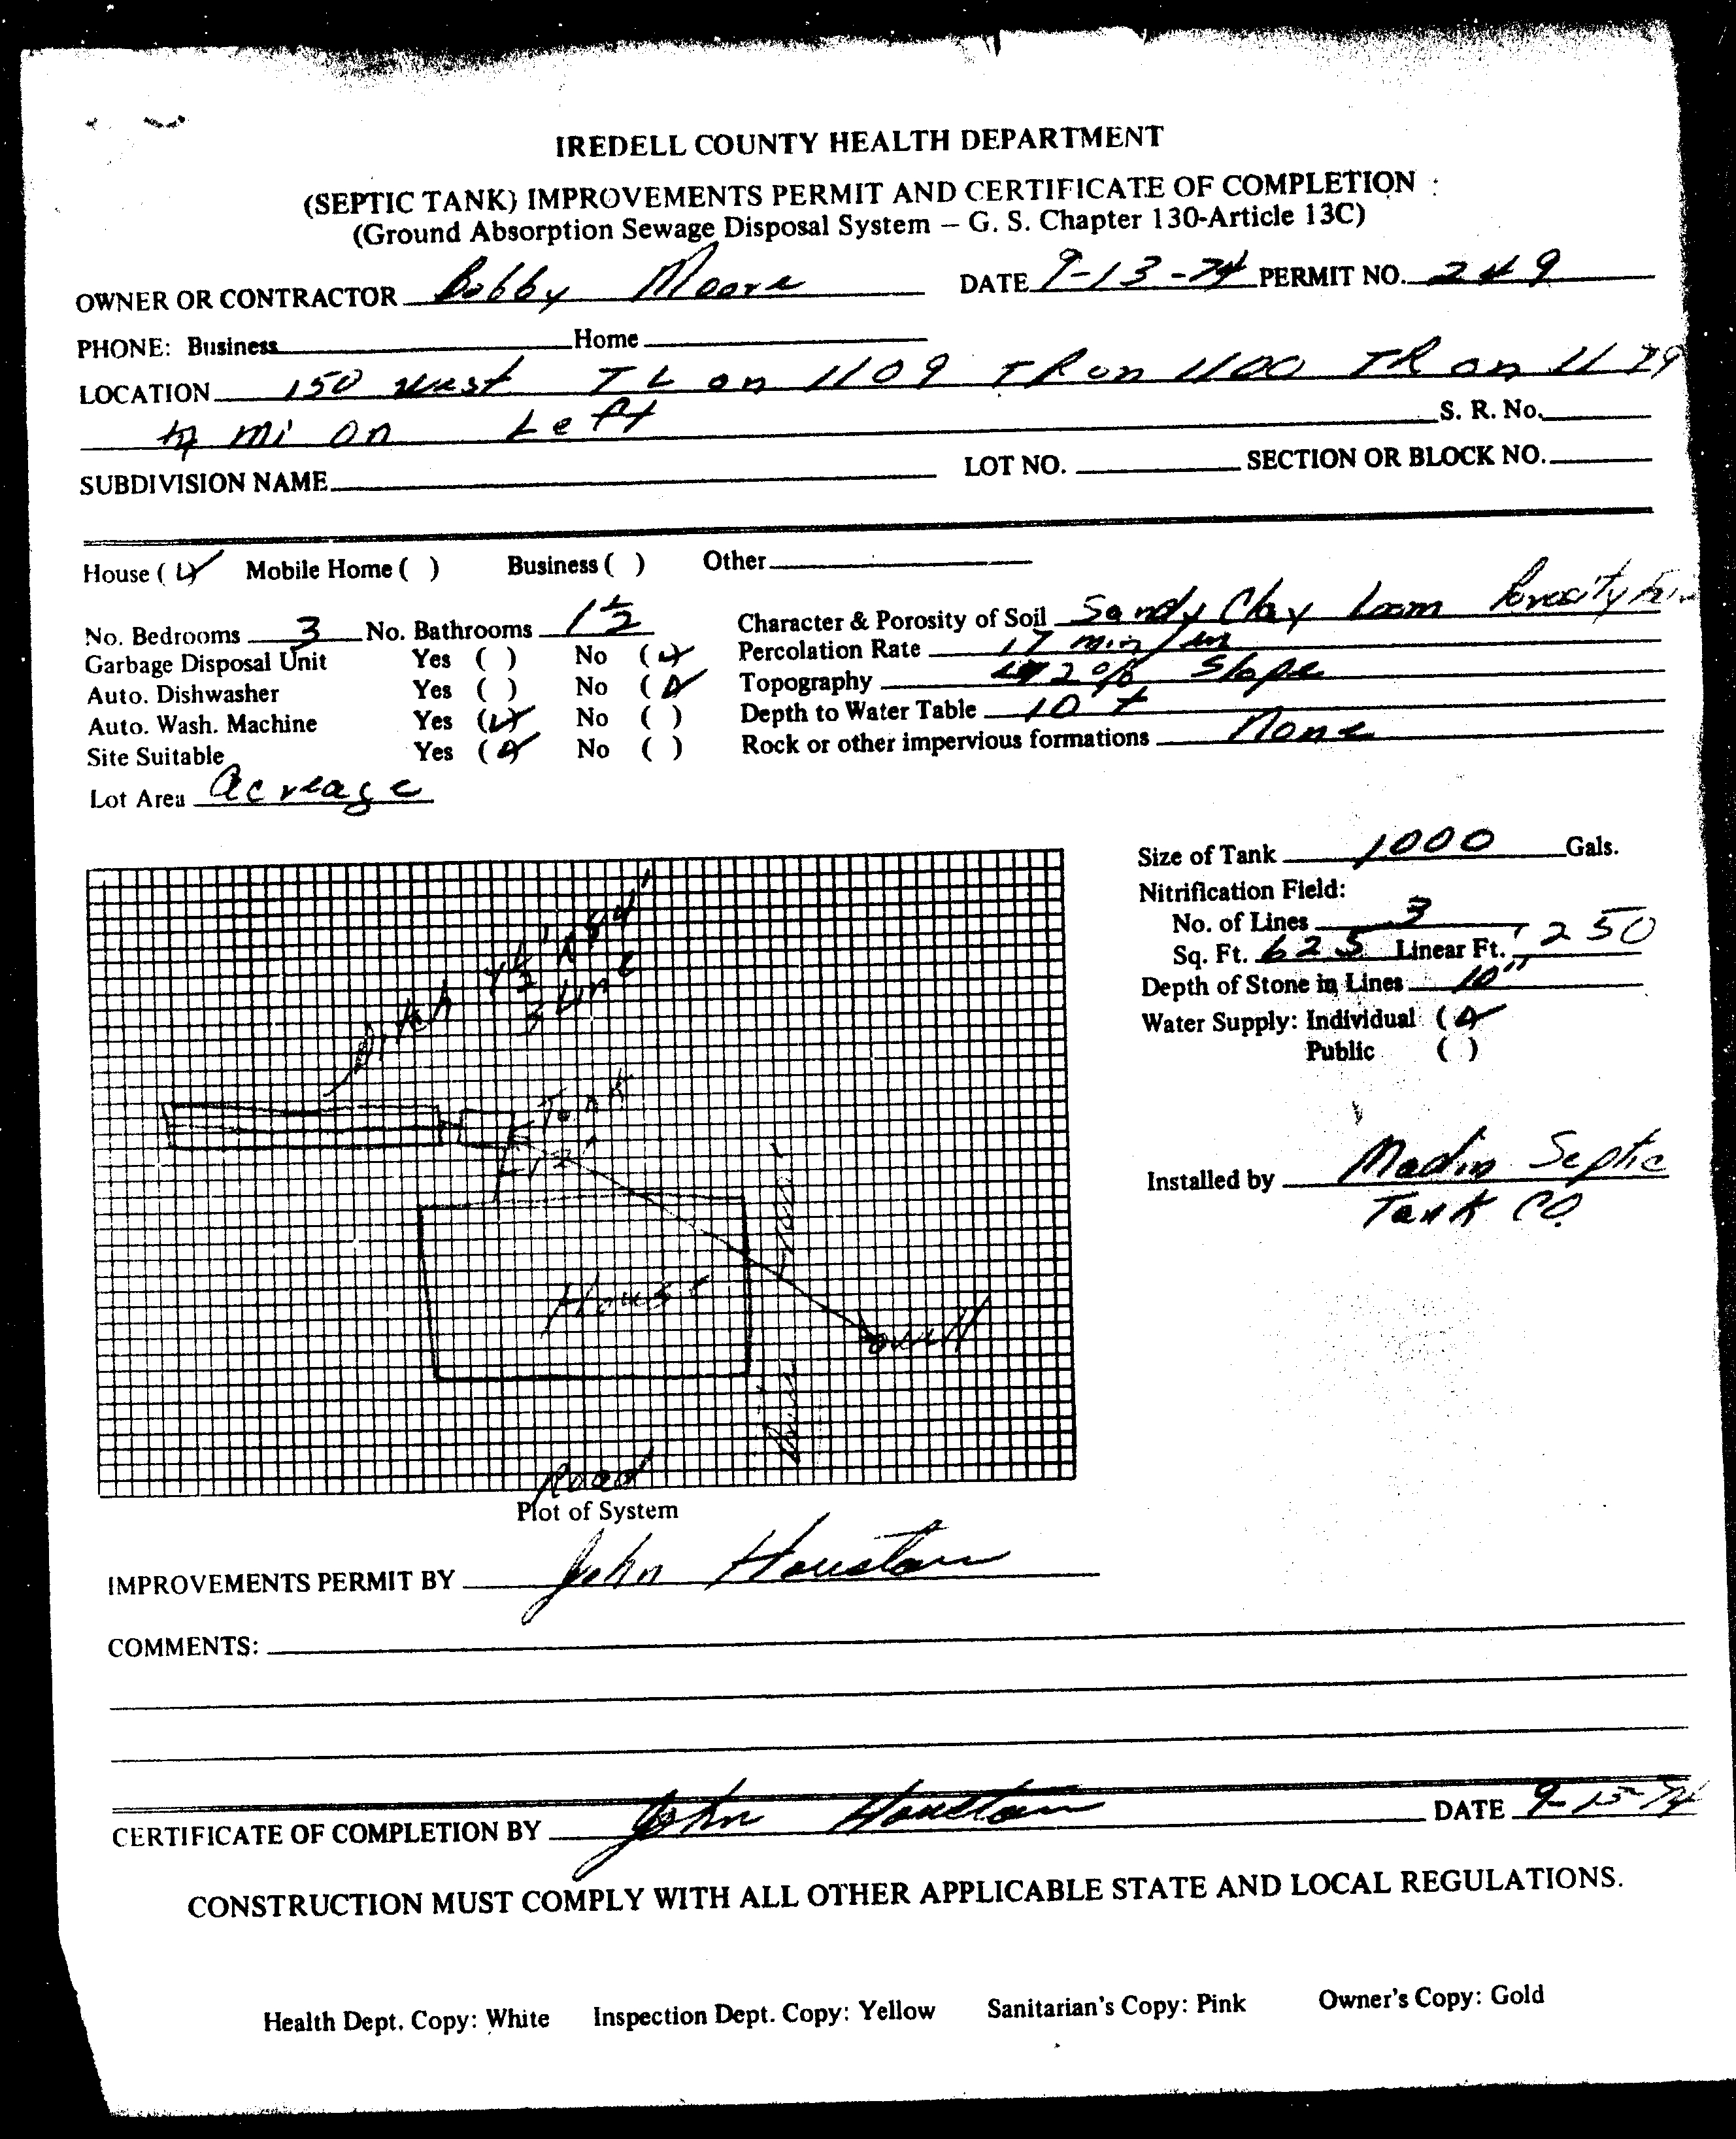 IREDELL COUNTY HEALTH DEPARTMENT
(SEPTIC TANK) IMPROVEMENTS PERMIT AND CERTIFICATE OF COMPLETION
(Ground Absorption Sewage Disposal System – G. S. Chapter 130-Article 13C)
OWNER OR CONTRACTOR Bobby Moore DATE 9-13-74 PERMIT NO. 249
PHONE: Business Home
LOCATION 150 West TL on 1109 TR on 1100 TR on 1179
mi on Left S. R. No.
SUBDIVISION NAME LOT NO. SECTION OR BLOCK NO.
House ( ✓ ) Mobile Home ( ) Business ( ) Other
No. Bedrooms 3 No. Bathrooms 1 1/2 Character & Porosity of Soil Sandy Clay Loam Porosity
Garbage Disposal Unit Yes ( ) No ( ✓ ) Percolation Rate 17 min/in
Auto. Dishwasher Yes ( ) No ( ✓ ) Topography 2% Slope
Auto. Wash. Machine Yes ( ✓ ) No ( ) Depth to Water Table 10' +
Site Suitable Yes ( ✓ ) No ( ) Rock or other impervious formations None
Lot Area acreage
Size of Tank 1000 Gals.
Nitrification Field:
No. of Lines 3
Sq. Ft. 625 Linear Ft. 250
Depth of Stone in Lines 10"
Water Supply: Individual ( ✓ )
Public ( )
Installed by Septic
Tank CO.
Ditch
3 Line
Tank
12'
House
100'
well
Drive
Road
Plot of System
IMPROVEMENTS PERMIT BY John Houston
COMMENTS:
CERTIFICATE OF COMPLETION BY John Houston DATE 9-15-74
CONSTRUCTION MUST COMPLY WITH ALL OTHER APPLICABLE STATE AND LOCAL REGULATIONS.
Health Dept. Copy: White Inspection Dept. Copy: Yellow Sanitarian's Copy: Pink Owner's Copy: Gold